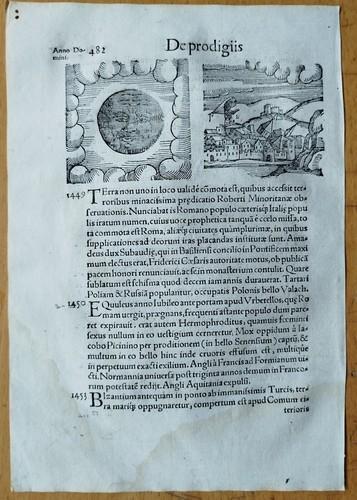 Anno Do-
mini.
482
De prodigiis
1449 Terra non uno in loco validè cōmota est, quibus accessit ter-
roribus minacissima prędicatio Roberti Minoritanæ ob-
seruationis. Nunciabat is Romano populo cæterisq́; Italię popu-
lis iratum numen, cuius uoce prophetica tanquā è celo missa, to
ta commota est Roma, aliæq́; ciuitates quāplurimæ, in quibus
supplicationes ad deorum iras placandas institutæ sunt. Ama-
deus dux Subaudię, qui in Basiliensi concilio in Pontificem maxi
mum electus erat, Friderici Cæsaris autoritate motus, ob publicā
pacem honori renunciauit, ac se in monasterium contulit. Quare
sublatum est schisma quod decem iam annis durauerat. Tartari
Poliam & Russiā populantur, occupatis Polonis bello Valach.
1450 Equuleus anno Iubileo ante portam apud Vrbetellos, quę Ro
mam uergit, prægnans, frequenti astante populo dum pare-
ret expirauit. erat autem Hermophroditus, quamuis fœminei
sexus nullum in eo uestigium cerneretur. Mox oppidum à Ia-
cobo Picinino per proditionem (in bello Senensium) captū, &
multum in eo bello hinc inde cruoris effusum est, multique
in perpetuum exacti exilium. Angli à Francis ad Formianum ui-
cti. Normannia uniuersa post triginta annos demum in Franco-
rum potestatē redijt. Angli Aquitania expulsi.
1453 Bizantium antequàm in ponto ab immanissimis Turcis, ter-
ra mariq́; oppugnaretur, compertum est apud Comum ci-
terioris